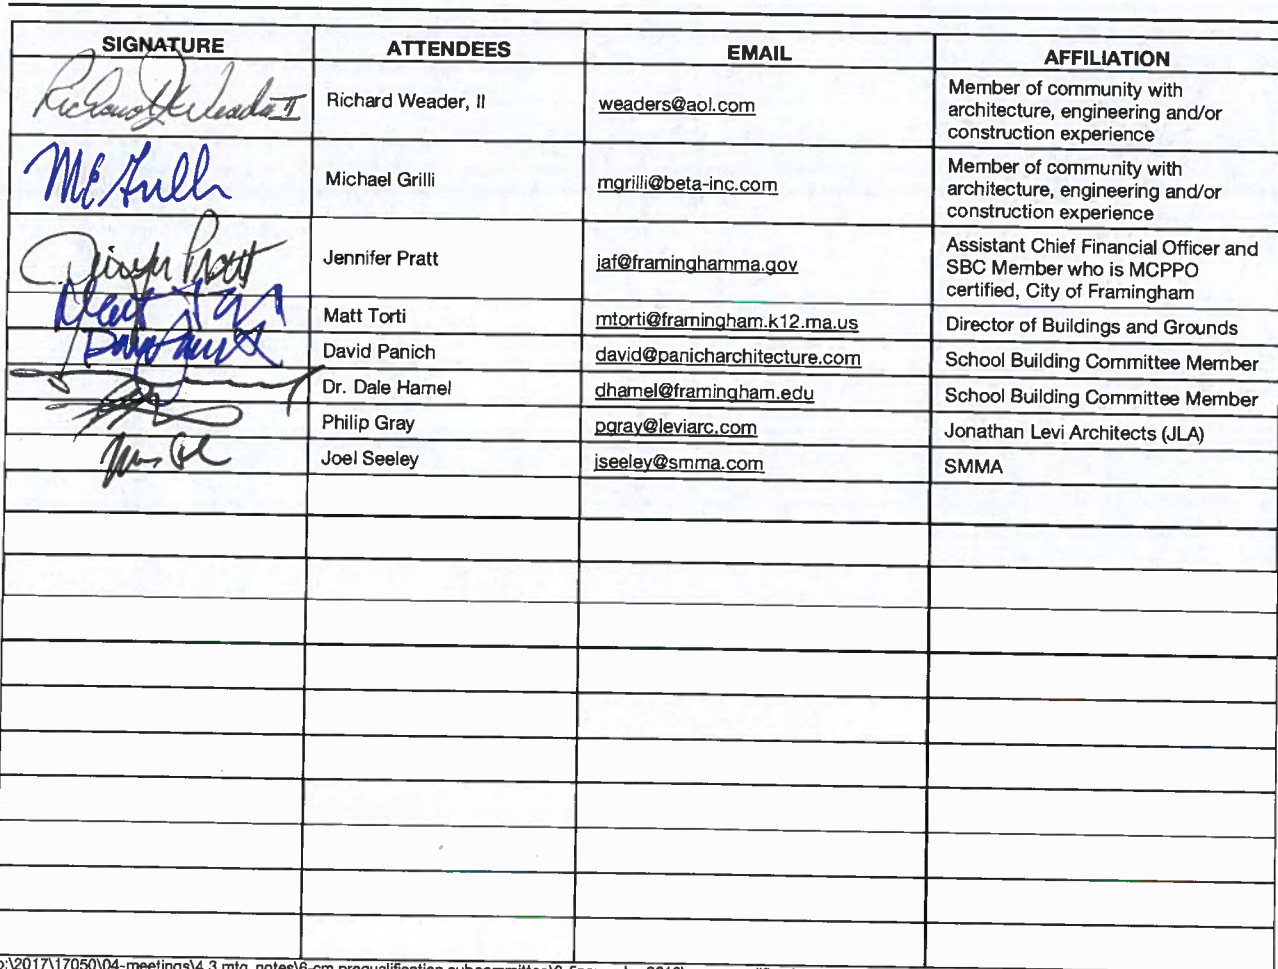 SIGNATURE ATTENDEES EMAIL AFFILIATION
Richard Weader II Richard Weader, II weaders@aol.com Member of community with
architecture, engineering and/or
construction experience
Michael Grilli mgrilli@beta-inc.com Member of community with
architecture, engineering and/or
construction experience
Jennifer Pratt Jennifer Pratt jaf@framinghamma.gov Assistant Chief Financial Officer and
SBC Member who is MCPPO
certified, City of Framingham
Matt Torti Matt Torti mtorti@framingham.k12.ma.us Director of Buildings and Grounds
David Panich david@panicharchitecture.com School Building Committee Member
Dr. Dale Hamel dhamel@framingham.edu School Building Committee Member
Philip Gray pgray@leviarc.com Jonathan Levi Architects (JLA)
Joel Seeley jseeley@smma.com SMMA
p:\2017\17050\04-meetings\4.3 mtg_notes\6-cm prequalification subcommittee\